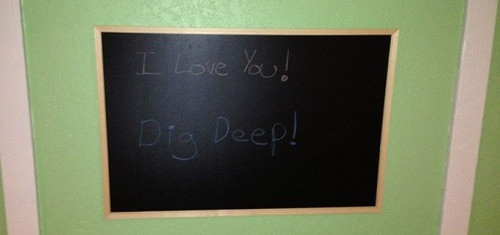 I Love You!
Dig Deep!